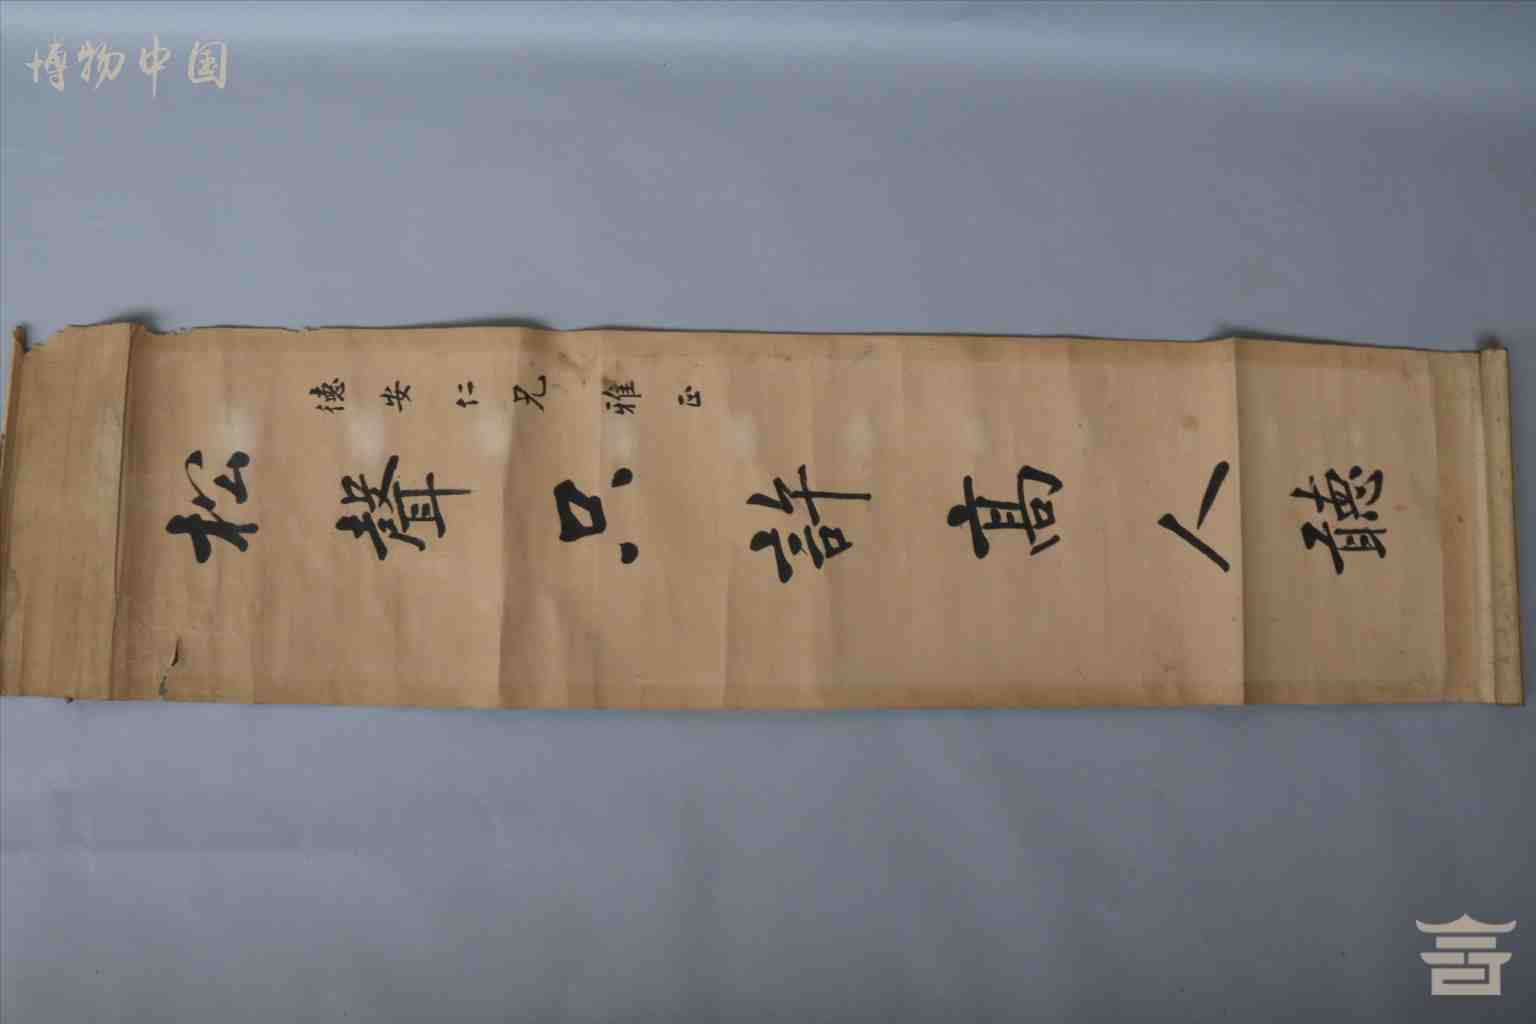 博物中国
德安仁兄雅正
松聲只許高人聽